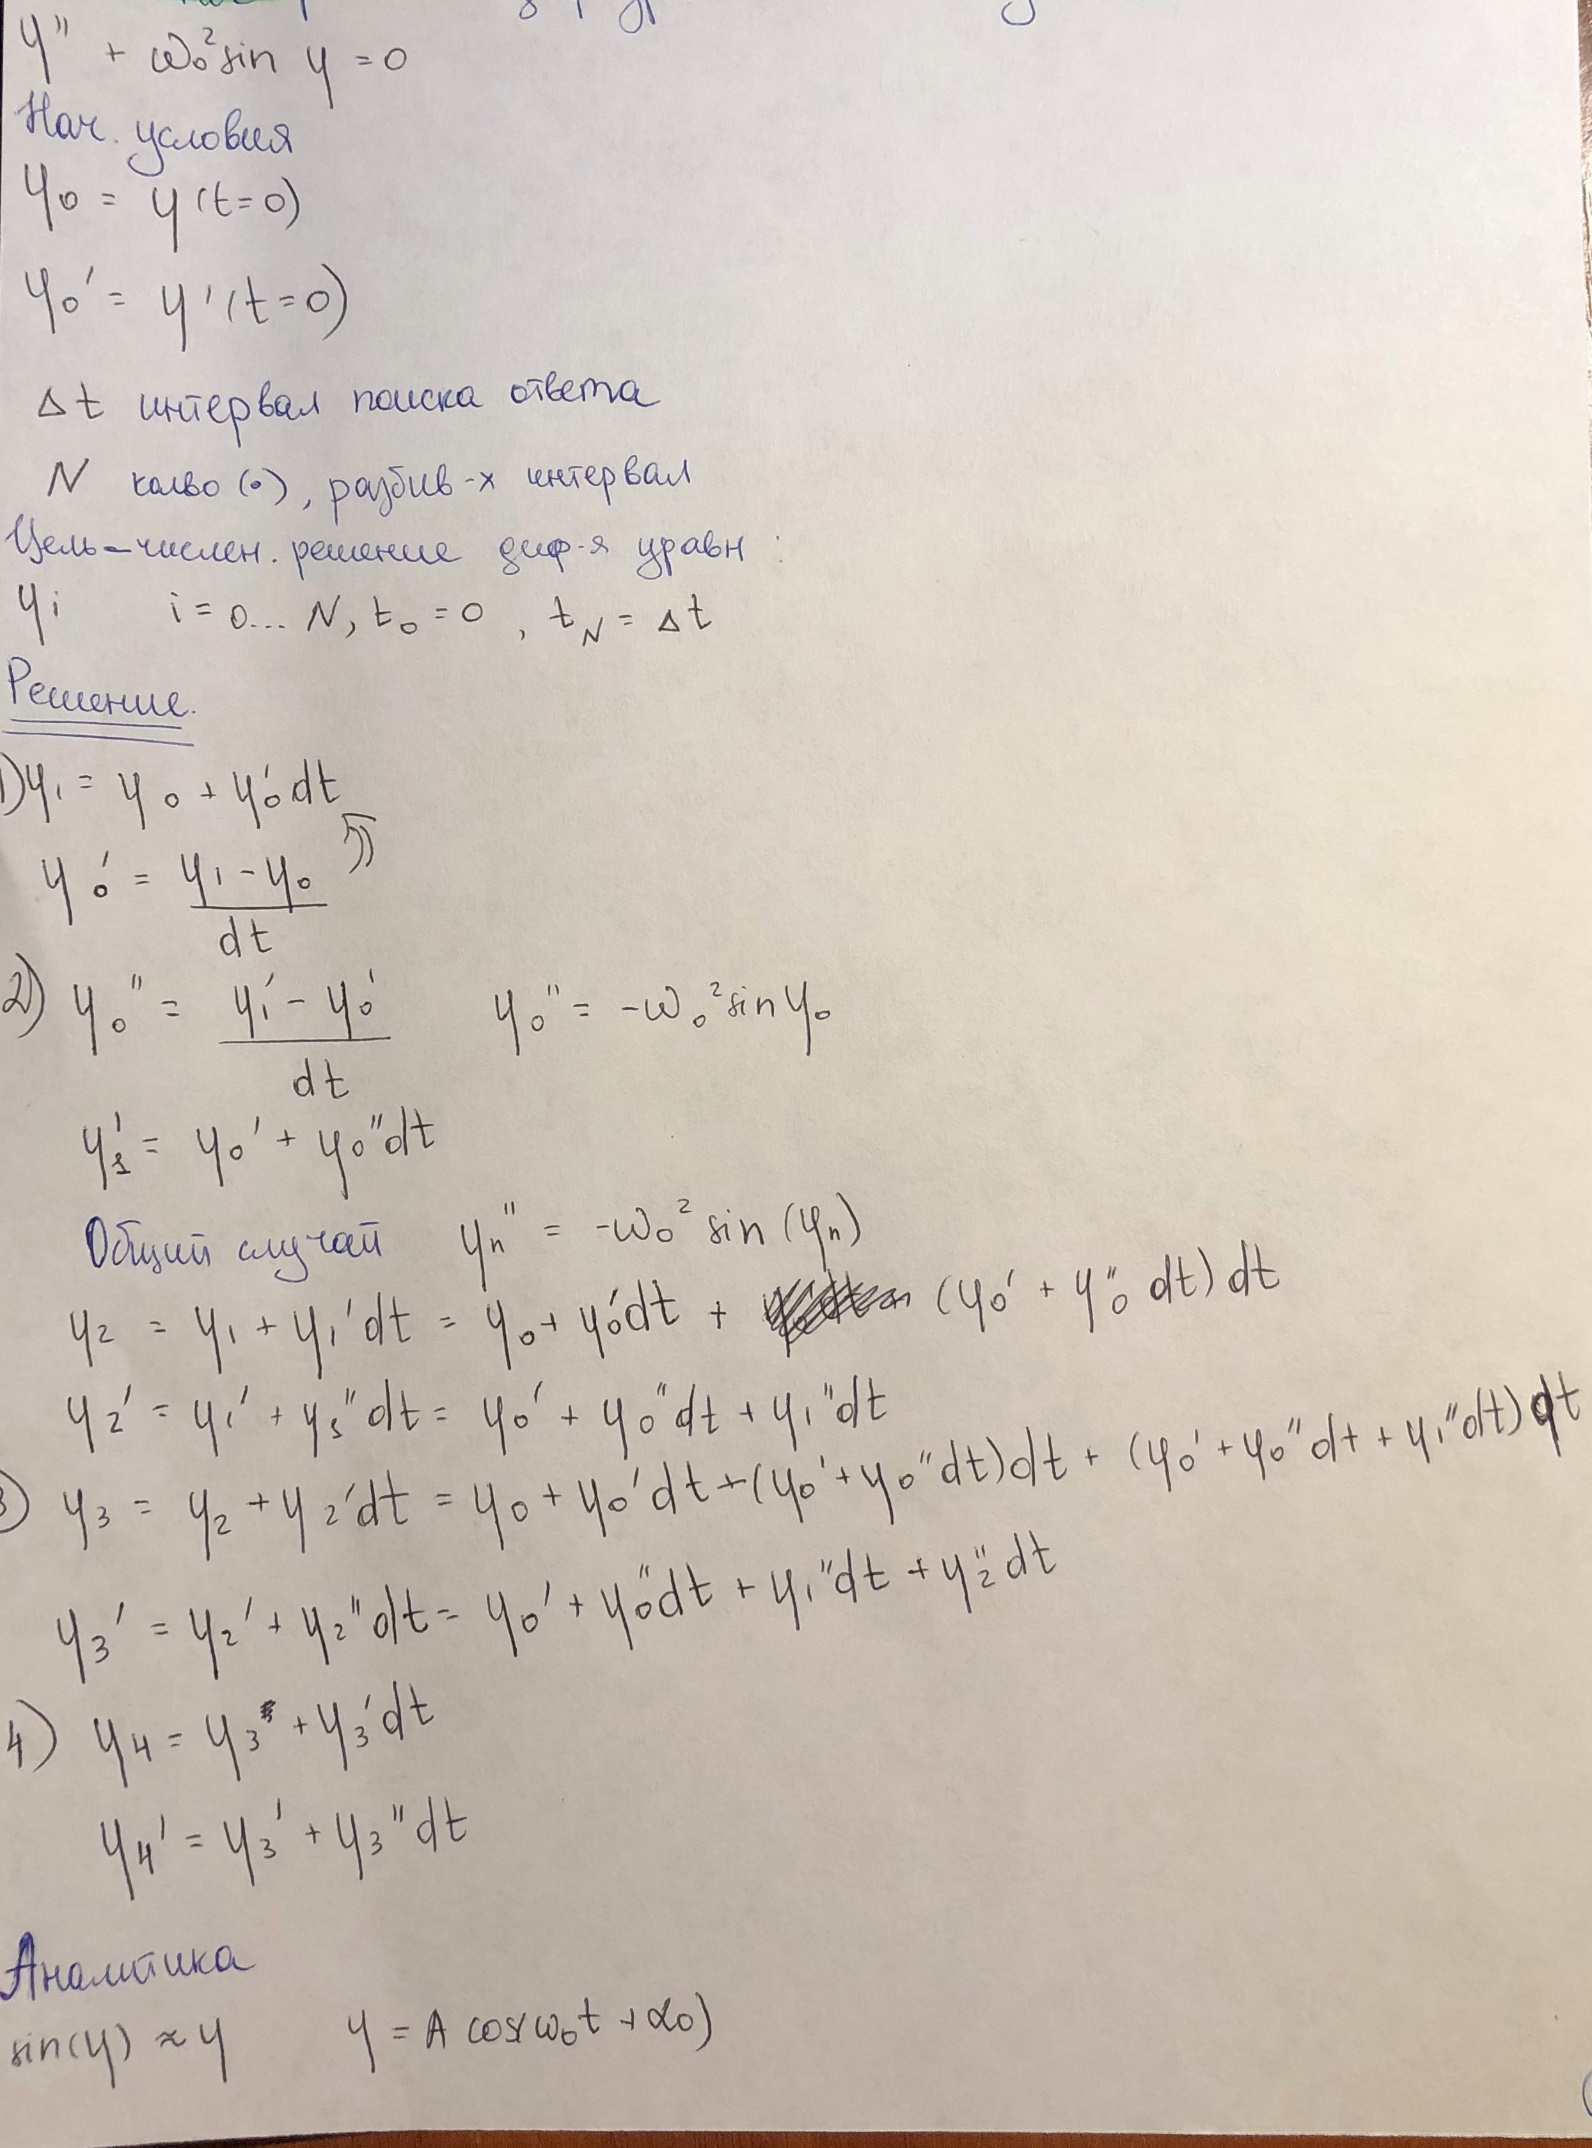 y'' + ω₀² sin y = 0
Нач. условия
y₀ = y(t=0)
y₀' = y'(t=0)
Δt интервал поиска ответа
N колво (•), разбив-х интервал
Цель – числен. решение диф-я уравн :
yi i = 0... N, t₀ = 0 , t_N = Δt
Решение.
1) y₁ = y₀ + y₀'dt
y₀' = (y₁ - y₀)/dt
2) y₀'' = (y₁' - y₀')/dt y₀'' = -ω₀² sin y₀
y₁' = y₀' + y₀''dt
Общий случай yn'' = -ω₀² sin(yn)
y₂ = y₁ + y₁'dt = y₀ + y₀'dt + (y₀' + y₀''dt)dt
y₂' = y₁' + y₁''dt = y₀' + y₀''dt + y₁''dt
3) y₃ = y₂ + y₂'dt = y₀ + y₀'dt + (y₀' + y₀''dt)dt + (y₀' + y₀''dt + y₁''dt)dt
y₃' = y₂' + y₂''dt = y₀' + y₀''dt + y₁''dt + y₂''dt
4) y₄ = y₃ + y₃'dt
y₄' = y₃' + y₃''dt
Аналитика
sin(y) ≈ y y = A cos(ω₀t + α₀)